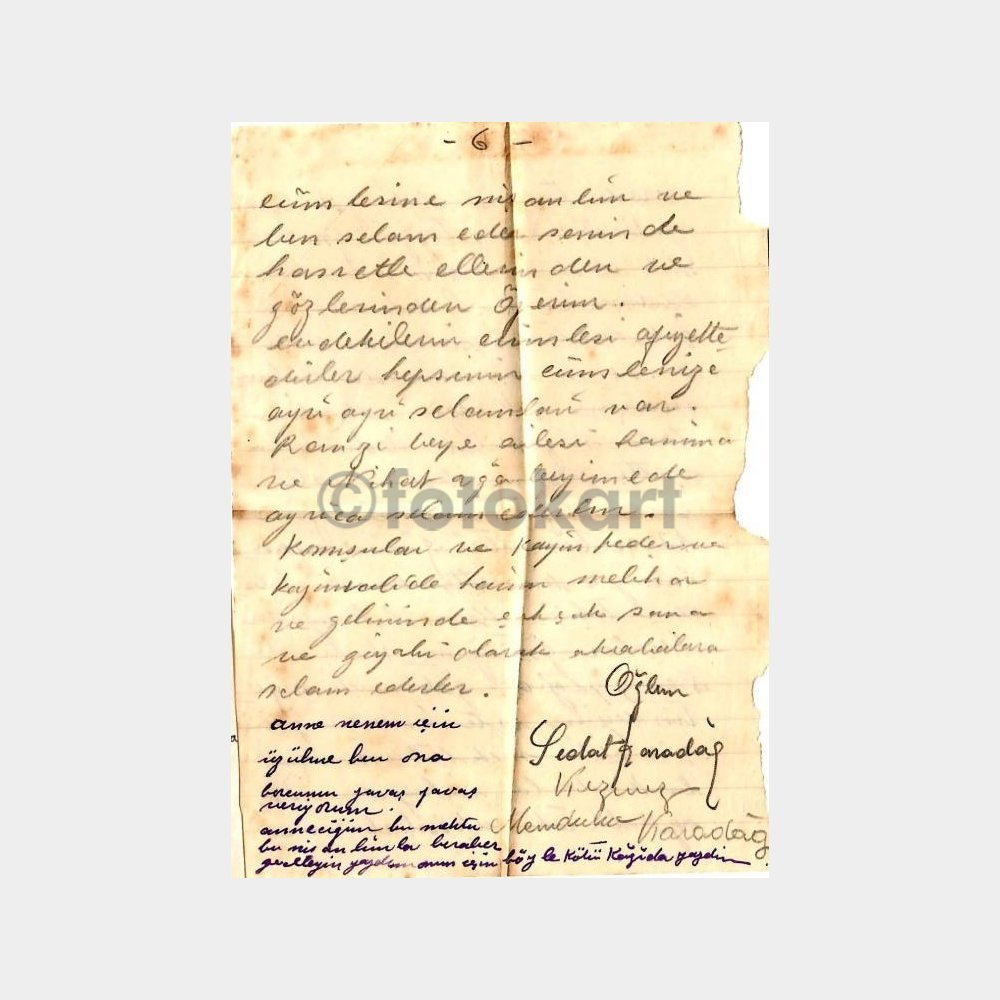 - 6 -
cümlesine nişanlım ve
ben selam eder seninde
hasretle ellerinden ve
gözlerinden Öperim.
evdekilerin cümlesi afiyette
dirler hepsinin cümlenize
ayrı ayrı selamları var.
Ramzi beye ailesi hanıma
ve Nihat ağabeyimede
ayrıca selam ederim.
Komşular ve Kayın peder ve
Kayınvalide hanım meliha
ve gelininde çok çok sana
ve giyabi olarak akrabalara
selam ederler.
Oğlun
Sedat Karadağ
Memduha Karadağ
anne nenem için
üzülme ben ona
borcumu yavaş yavaş
veriyorum.
anneciğim bu mektu
bu nişanlımla beraber
geceleyin yazdım onun için böyle Kötü Kağıda yazdım
©fotokart